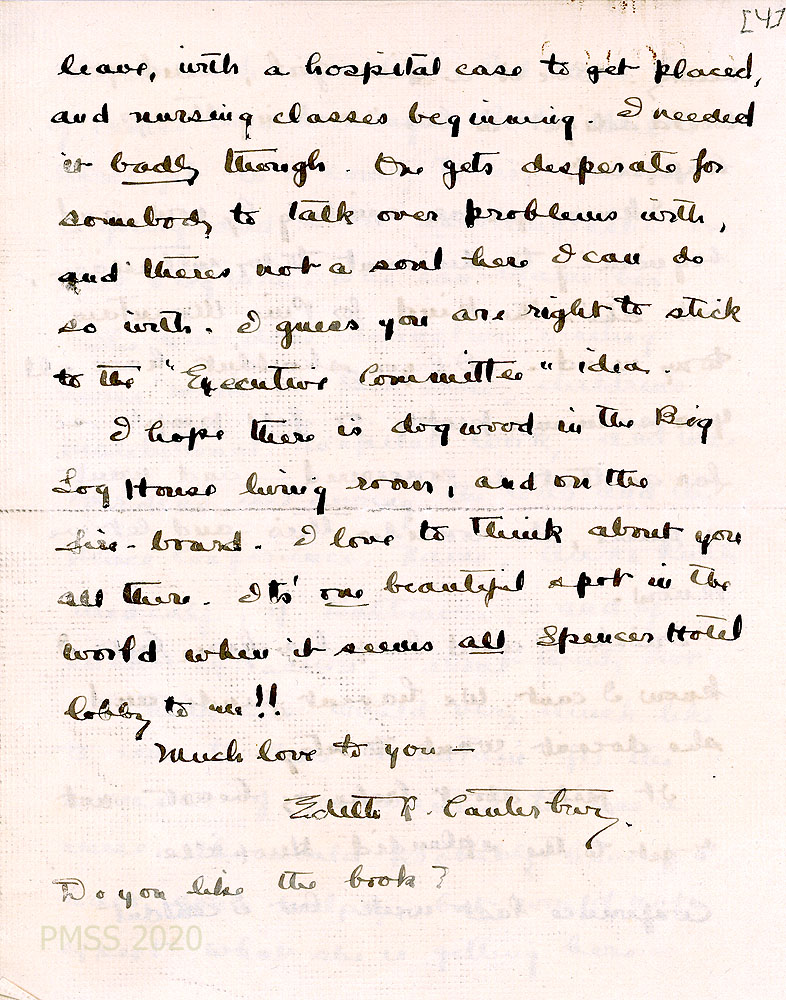 [4]
leave, with a hospital case to get placed,
and nursing classes beginning. I needed
it badly though. One gets desperate for
somebody to talk over problems with,
and theres not a soul here I can do
so with. I guess you are right to stick
to the "Executive Committee" idea.
I hope there is dogwood in the Big
Log House living room, and on the
fire-board. I love to think about you
all there. Its' one beautiful spot in the
world when it seems all Spencer Hotel
lobby to me!!
Much love to you —
Edith R. Canterbury.
Do you like the book?
PMSS 2020